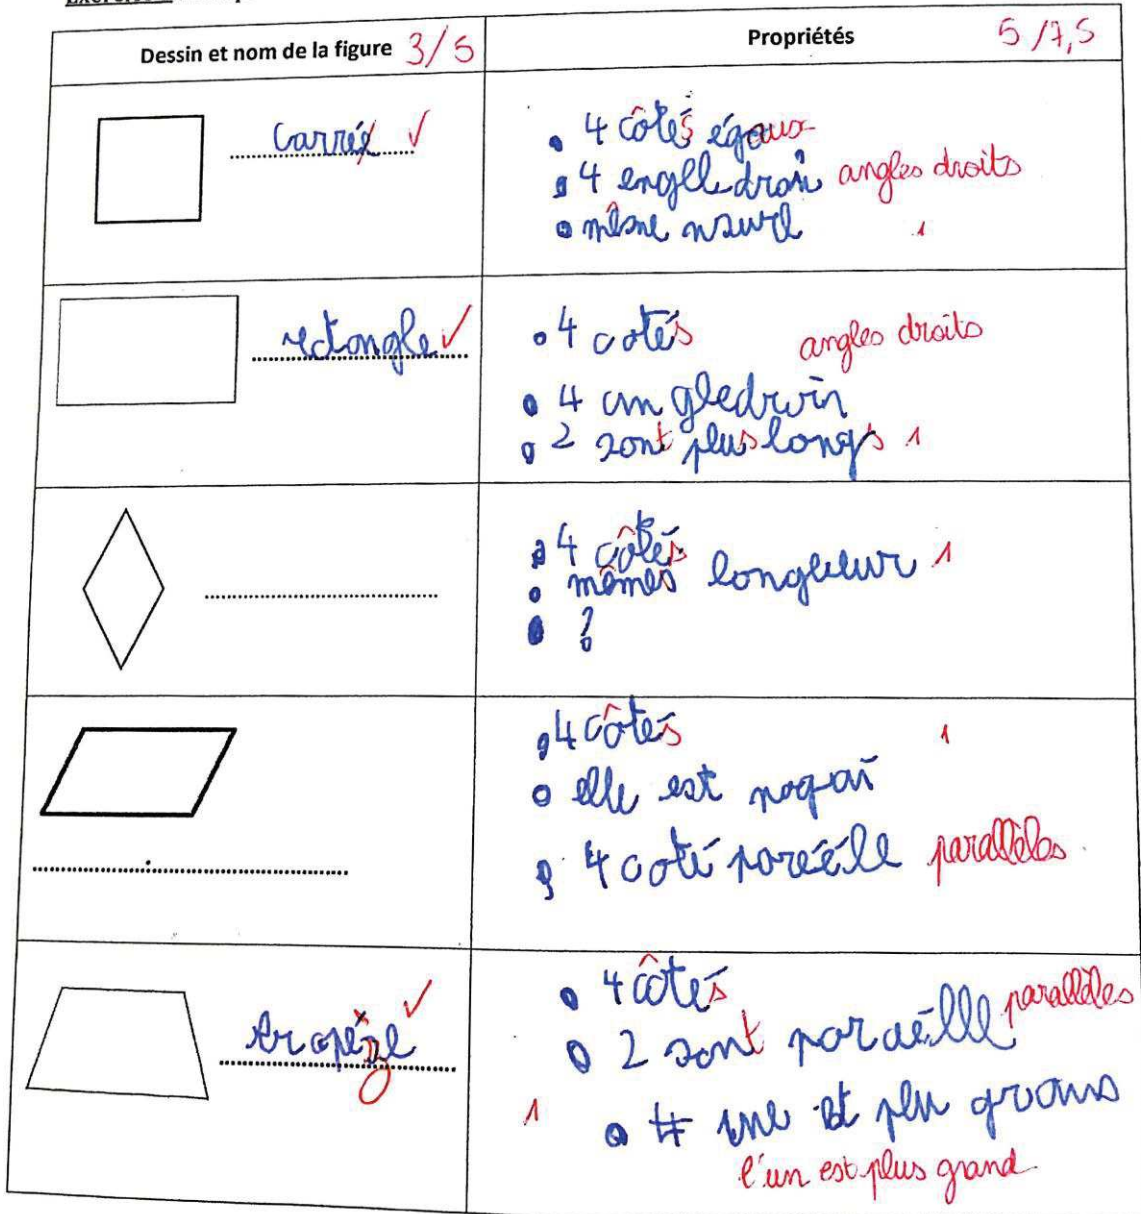 Dessin et nom de la figure 3/5
Propriétés 5/7,5
carrée ✓
• 4 côtés égaux
• 4 englle droî angles droits
• même 1
rectangle ✓
• 4 cotés angles droits
• 4 an gledroin
• 2 sont plus longs 1
• 4 côtés
• mêmes longueur 1
• ?
• 4 côtés 1
• elle est
• 4 coté paréèlle parallèles
trapéze ✓
• 4 côtés
• 2 sont paraélle parallèles
1 • une et plu grans
l'un est plus grand